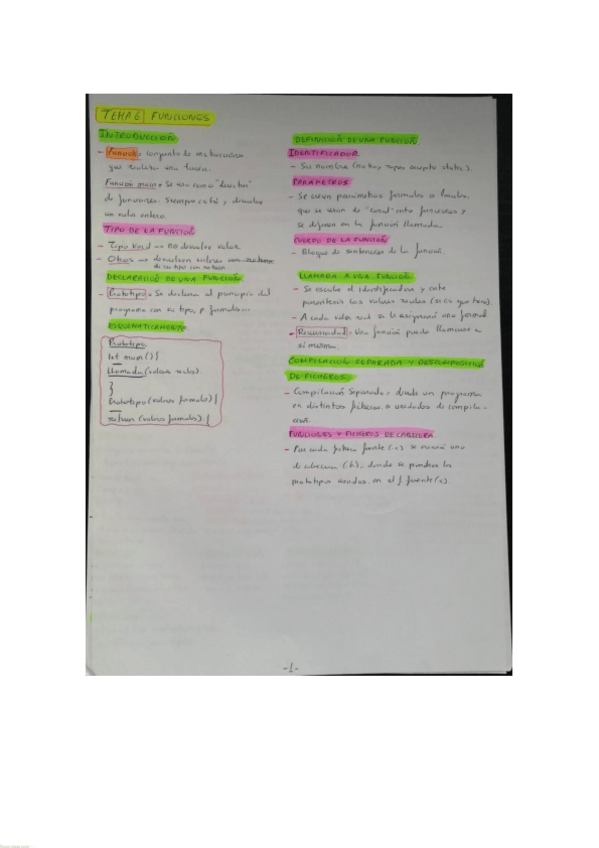 TEMA 6 FUNCIONES
INTRODUCCIÓN
- Función: conjunto de instrucciones
que realizan una tarea.
Función main: Se usa como "director"
de funciones. Siempre está y devuelve
un valor entero.
TIPO DE LA FUNCIÓN
- Tipo Void → no devuelve valor
- Otros → devuelven valores
de su tipo con return
DECLARACIÓN DE UNA FUNCIÓN
- Prototipo: Se declara al principio del
programa con su tipo, p. formales...
ESQUEMÁTICAMENTE
Prototipo
int main () {
Llamada (valores reales).
}
Prototipo (valores formales) {
return (valores formales). {
DEFINICIÓN DE UNA FUNCIÓN
IDENTIFICADOR
- Su nombre (no hay tipos excepto static).
PARÁMETROS
- Se crean parámetros formales o locales
que se usan de "canal" entre funciones y
se definen en la función llamada.
CUERPO DE LA FUNCIÓN
- Bloque de sentencias de la función.
LLAMADA A UNA FUNCIÓN
- Se escribe el identificador y entre
paréntesis los valores reales (si es que tiene).
- A cada valor real se le asignará uno formal
- Recursividad: Una función puede llamarse a
sí misma.
COMPILACIÓN SEPARADA Y
DE FICHEROS
- Compilación Separada: donde un programa
en distintos ficheros o unidades de compila-
ción.
FUNCIONES Y FICHEROS DE CABECERA
- Por cada fichero fuente (.c) se creará uno
de cabecera (.h), donde se pondrán los
prototipos usados en el f. fuente (.c).
-1-